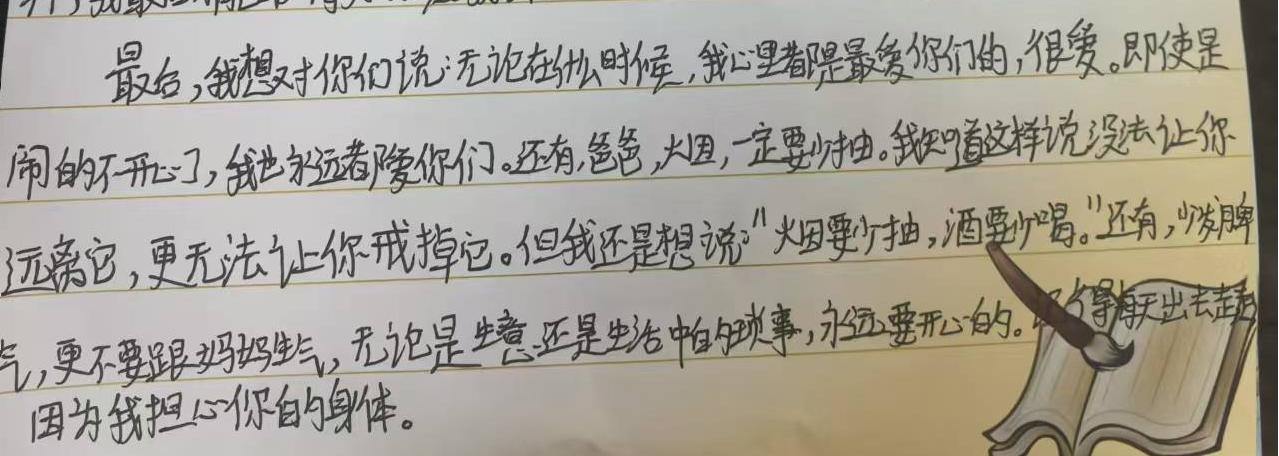 最后,我想对你们说:无论在什么时候,我心里都是最爱你们的,很爱。即使是
闹的不开心了,我也永远都爱你们。还有,爸爸,火烟,一定要少抽。我知道这样说没法让你
远离它,更无法让你戒掉它。但我还是想说:"火烟要少抽,酒要少喝。"还有,少发脾
气,更不要跟妈妈生气,无论是生意还是生活中的琐事,永远要开心的。记得每天出去走走
因为我担心你的身体。